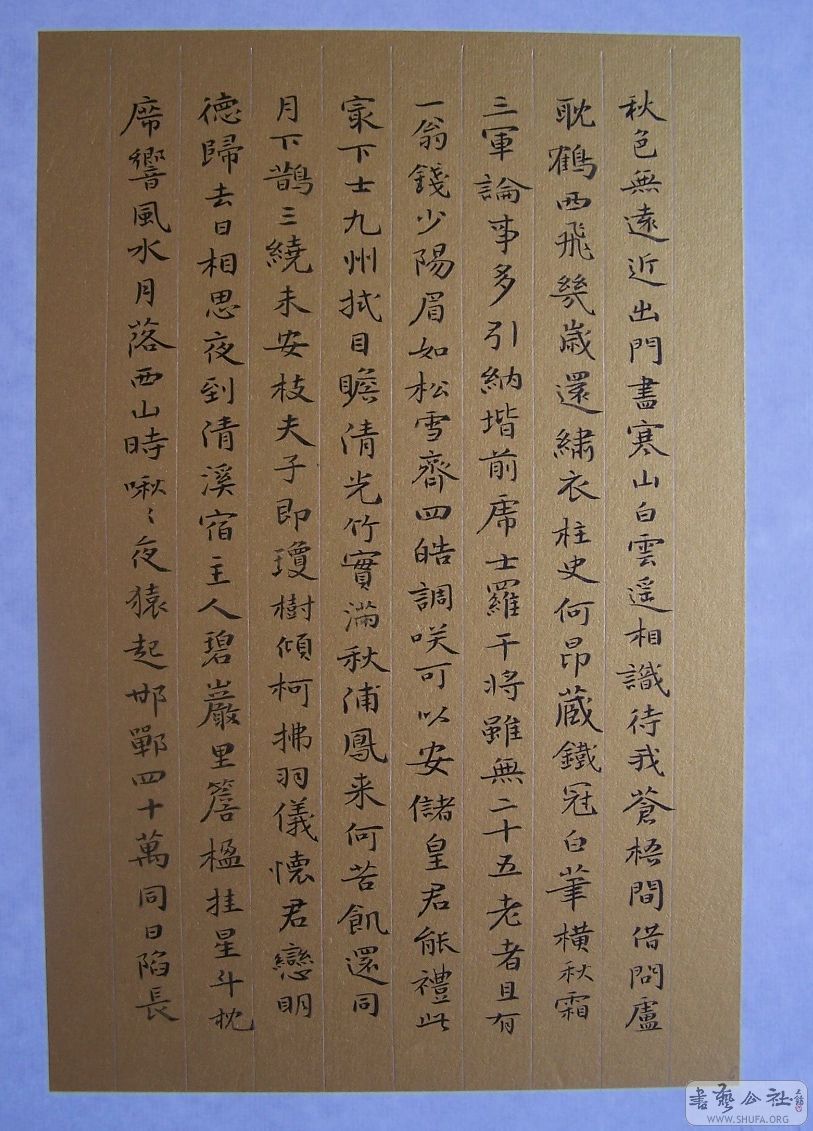 秋色無遠近出門盡寒山白雲遥相識待我蒼梧間借問盧
耽鶴西飛幾歲還繡衣柱史何昂藏鐵冠白筆橫秋霜
三軍論事多引納堦前虎士羅干將雖無二十五老者且有
一翁錢少陽眉如松雪齊四皓調咲可以安儲皇君能禮此
㝡下士九州拭目瞻清光竹實滿秋浦鳳来何苦飢還同
月下鵲三繞未安枝夫子即瓊樹傾柯拂羽儀懷君戀明
德歸去日相思夜到清溪宿主人碧巖里簷楹挂星斗枕
席響風水月落西山時啾〻夜猿起邯鄲四十萬同日陷長
書藝公社
WWW.SHUFA.ORG